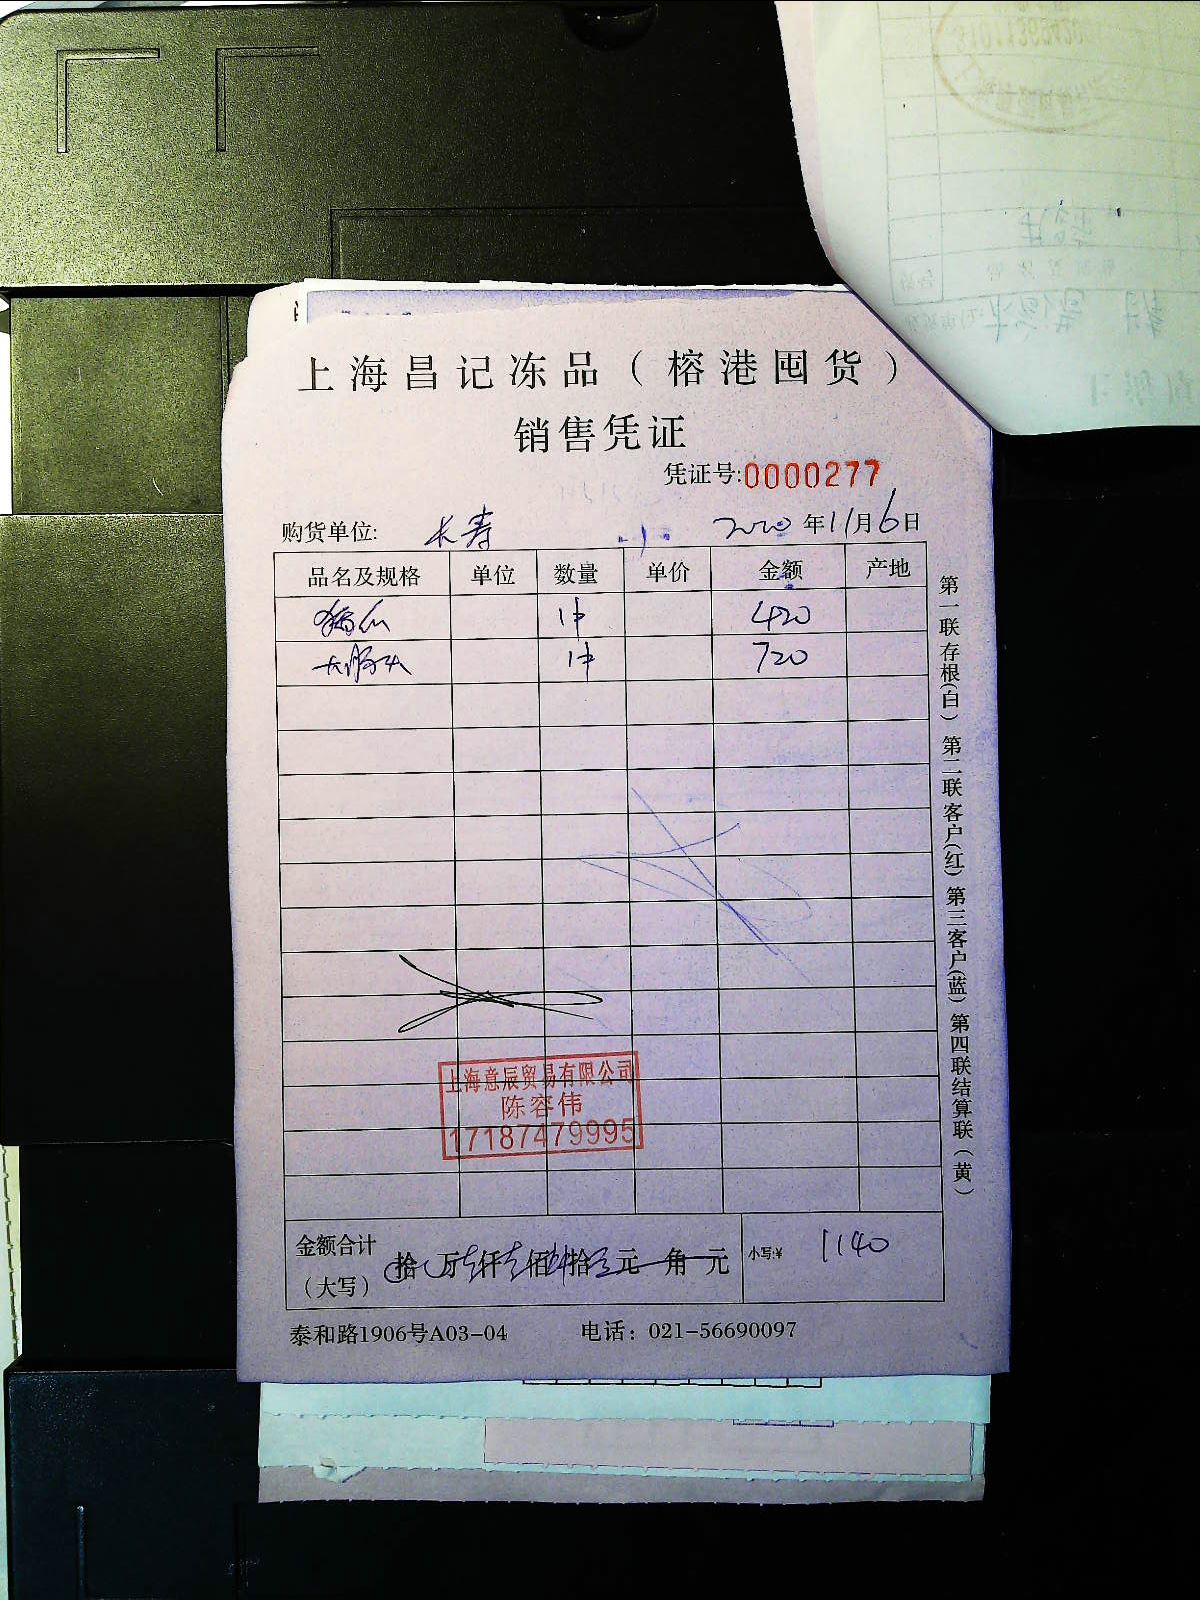 上海昌记冻品（榕港囤货）
销售凭证
凭证号:0000277
购货单位: 长寿 2020年11月6日
品名及规格 单位 数量 单价 金额 产地
1件 420
1件 720
第一联存根(白) 第二联客户(红) 第三客户(蓝) 第四联结算联(黄)
上海意辰贸易有限公司
陈容伟
17187479995
金额合计
（大写） 拾 万壹仟壹佰肆拾元 角 元 小写:¥ 1140
泰和路1906号A03-04 电话：021-56690097